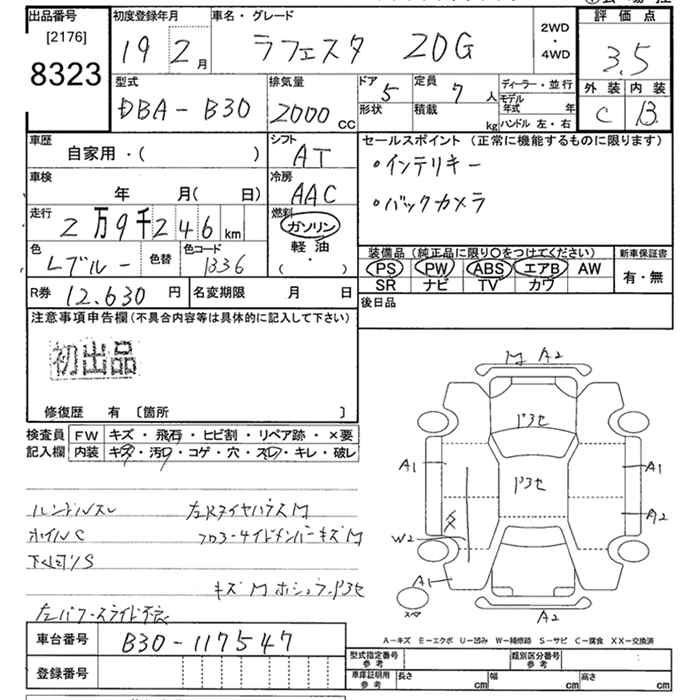 出品番号 初度登録年月 車名・グレード 評価点
[2176] 8323
19 2月 ラフェスタ 20G 2WD・4WD 3.5
型式 排気量 ドア 5 定員 7人 ディーラー・並行 外装 内装
DBA-B30 2000cc 形状 積載 kg モデル年式 年 ハンドル 左・右 C B
車歴 シフト セールスポイント(正常に機能するものに限ります)
自家用・( ) AT ・インテリキー
車検 冷房
年 月(日) AAC ・バックカメラ
走行 燃料
2万9千246km ガソリン 軽油 ( ・ )
色 色替 色コード 装備品(純正品に限り○をつけてください) 新車保証書
Lブルー B36 PS PW ABS エアB AW 有・無
SR ナビ TV カワ
R券 12,630円 名変期限 月 日 後日品
注意事項申告欄(不具合内容等は具体的に記入して下さい)
初出品
修復歴 有 〔箇所 〕
検査員 FW キズ・飛石・ヒビ割・リペア跡・×要
記入欄 内装 キズ・汚れ・コゲ・穴・スレ・キレ・破レ
M A2
ドヨセ
ドヨセ
A1 A1
A2
W2
A1
A2
スペア
ハンドルスレ 左Rタイヤハウスm
ホイルC フロアサイドメンバーキズm
下廻りS
キズm
A-キズ E-エクボ U-凹み W-補修跡 S-サビ C-腐食 XX-交換済
車台番号 B30-117547
型式指定番号 参考 類別区分番号 参考
登録番号
車庫証明用 参考 長さ cm 幅 cm 高さ cm